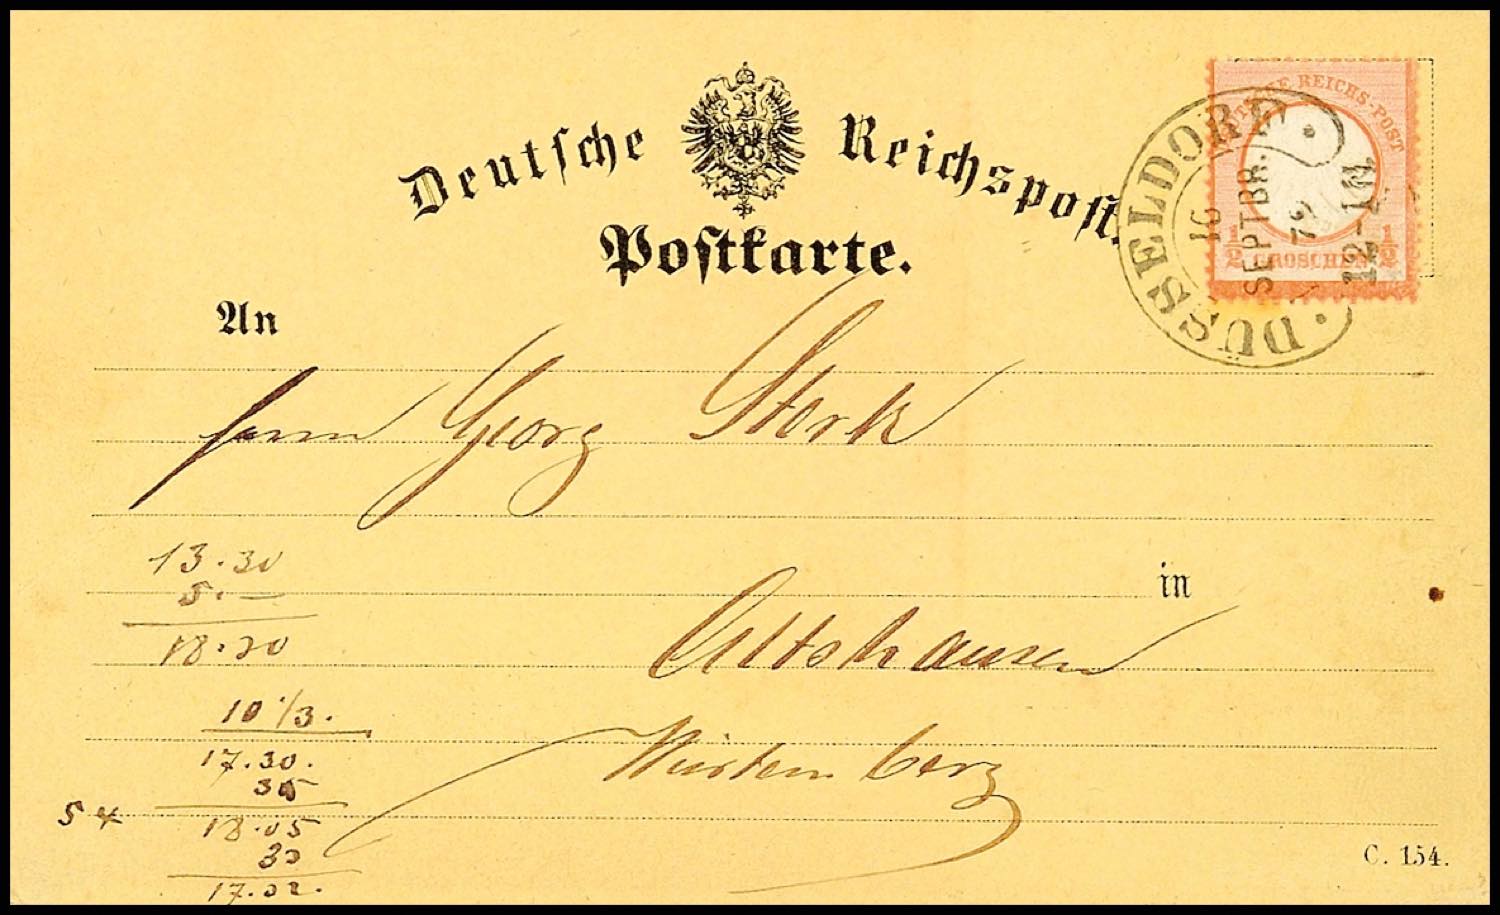 Deutsche Reichspost.
Postkarte.
REICHS-POST
1/2 GROSCHEN 1/2
DÜSSELDORF
16
SEPTBR.
12-1N.
An
Herrn Georg Stork
in
Altshausen
Würtemberg
13.30
5.—
18.30
10 1/3.
17.30.
35
18.05
54
30
17.02.
C. 154.